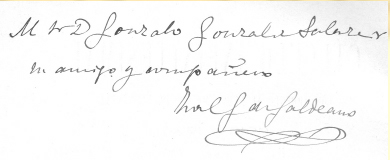 Al Sr D Gonzalo Gonzalez Salazar
su amigo y compañero
Zoel G de Galdeano